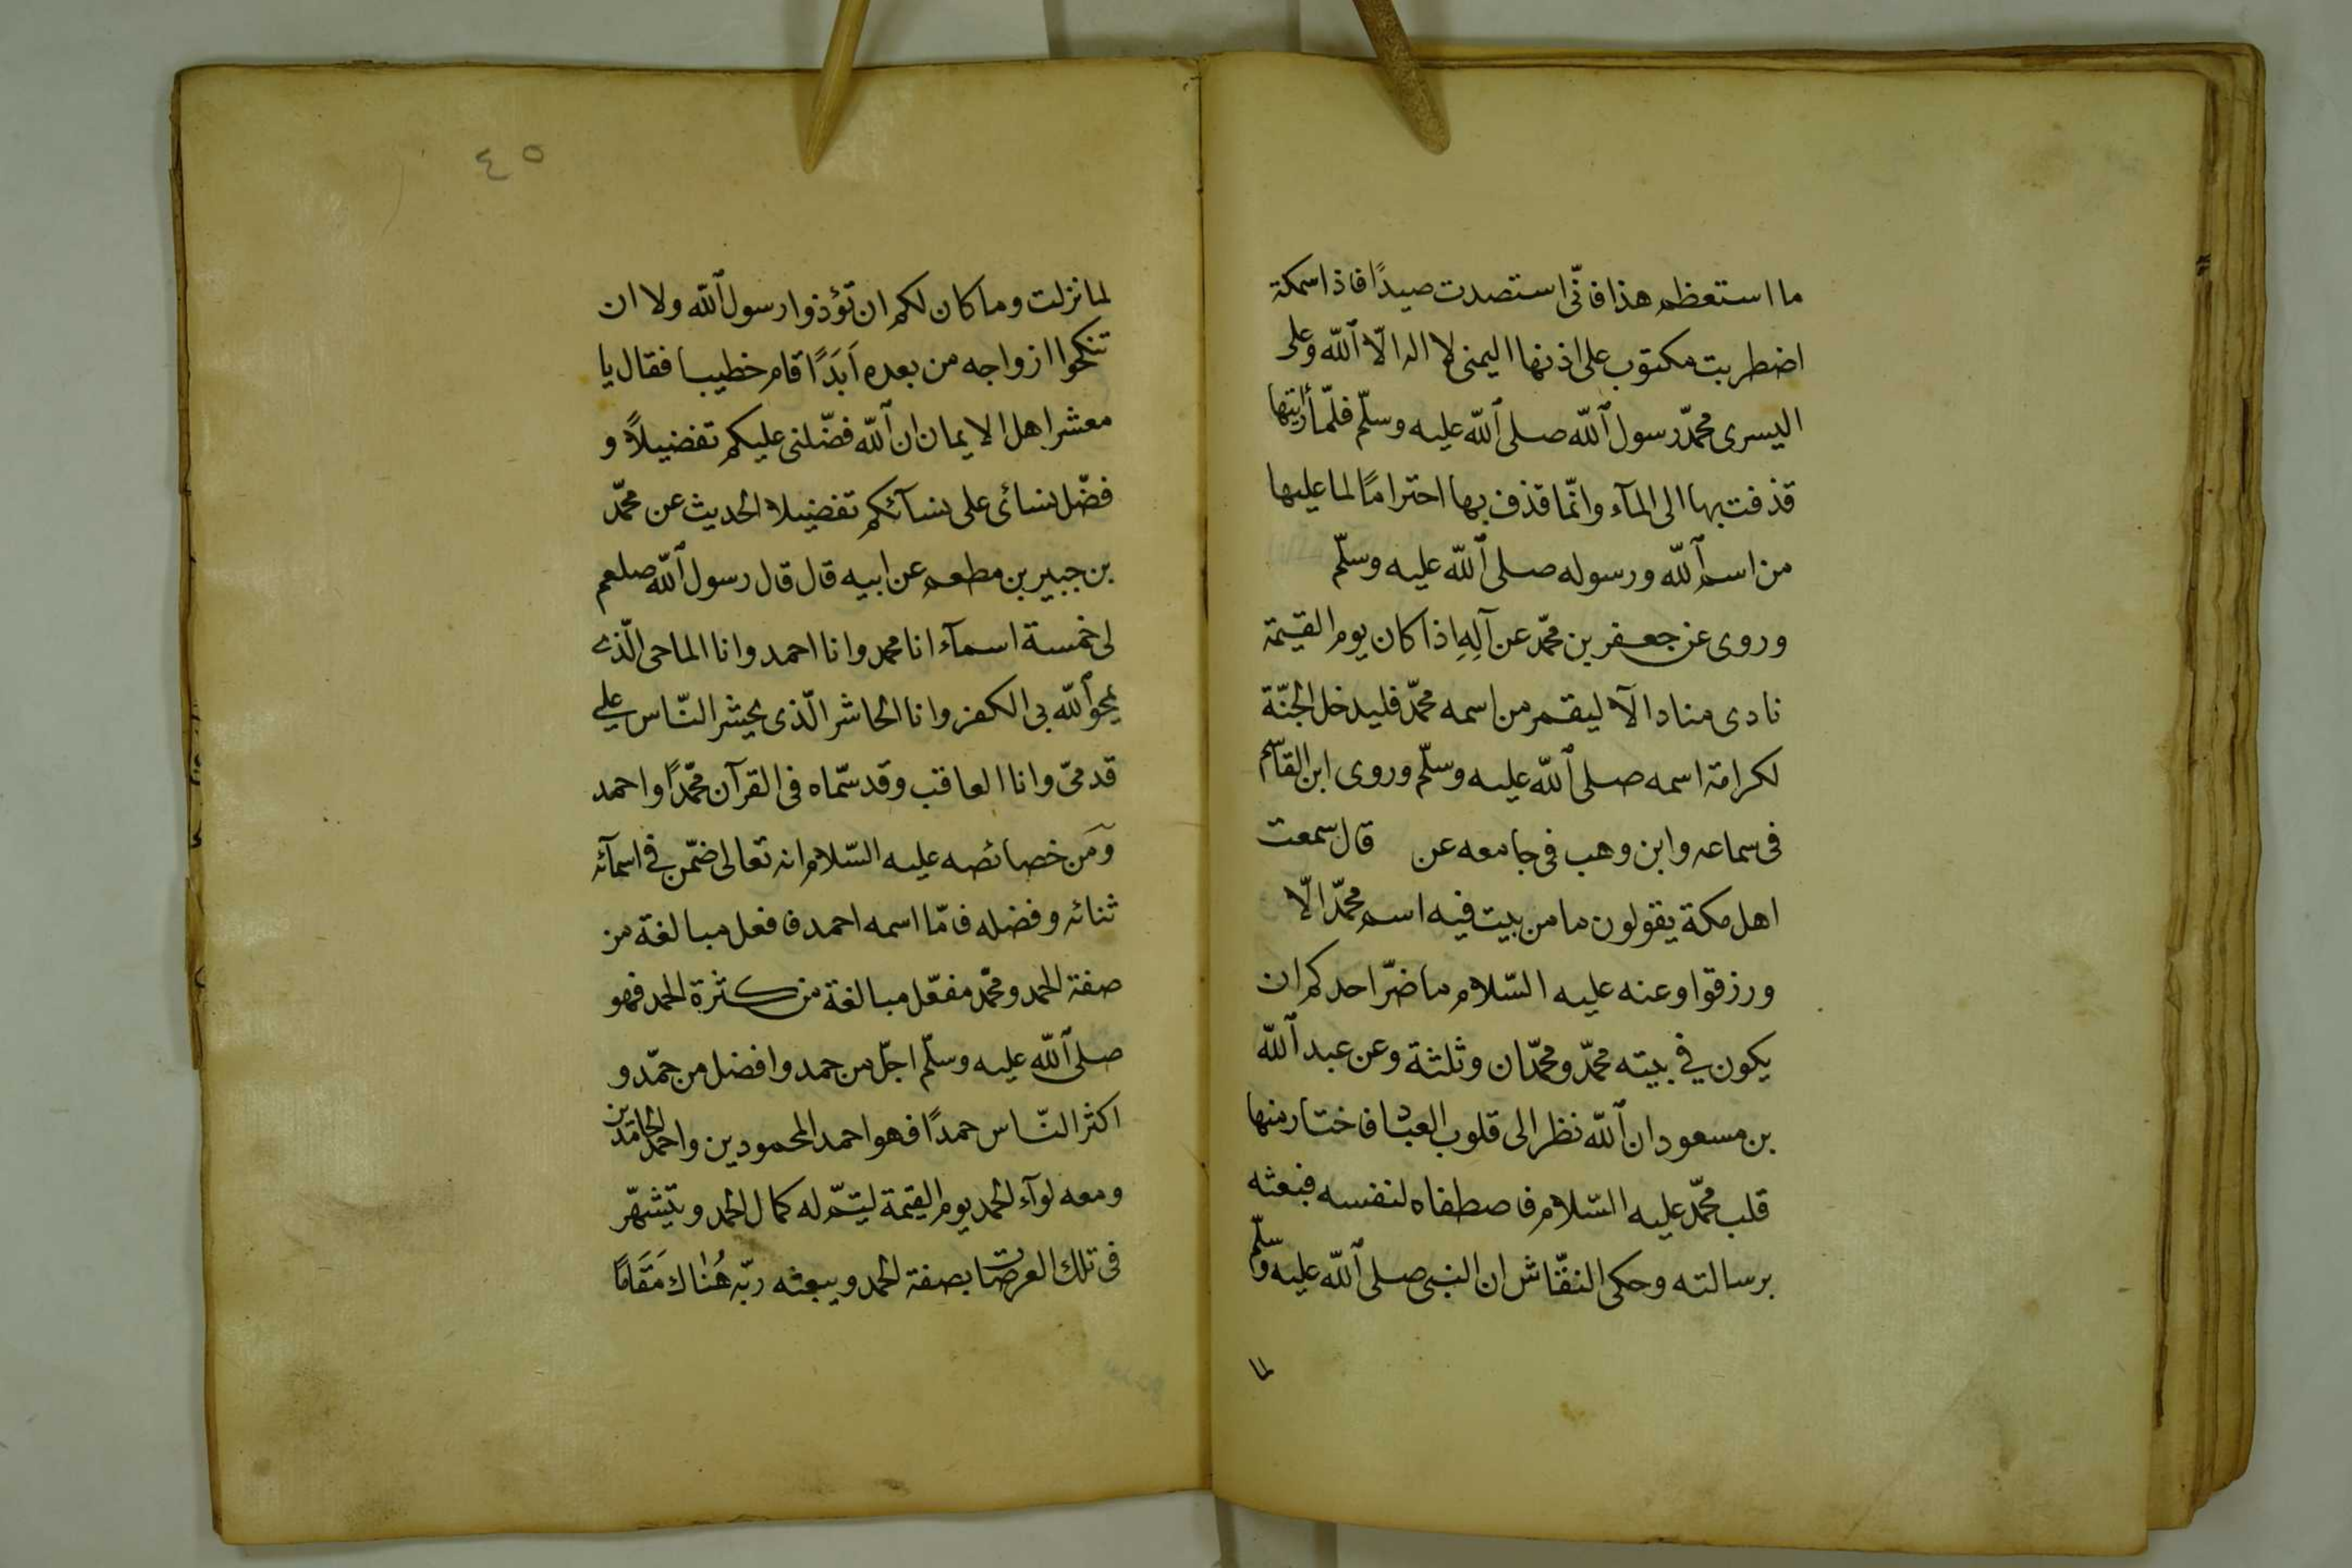 ما استعظم هذا فانّى استصدت صيدًا فاذا سمكة
اضطربت مكتوب على اذنها اليمنى لا اله الّا ٱللّٰه وعلى
اليسرى محمّد رسول ٱللّٰه صلى ٱللّٰه عليه وسلّم فلمّا رأيتها
قذفت بها الى المآء وانّما قذف بها احترامًا لما عليها
من اسم ٱللّٰه ورسوله صلى ٱللّٰه عليه وسلّم
وروى عن جعفر بن محمّد عن آلِهِ اذا كان يوم القيمة
نادى مناد الآ ليقم من اسمه محمّد فليدخل الجنّة
لكرامة اسمه صلى ٱللّٰه عليه وسلّم وروى ابن القاسم
فى سماعه وابن وهب فى جامعه عن قال سمعت
اهل مكة يقولون ما من بيت فيه اسم محمّد الّا
ورزقوا وعنه عليه السّلام ما ضرّ احدكم ان
يكون في بيته محمّد ومحمّدان وثلثة وعن عبد ٱللّٰه
بن مسعود ان ٱللّٰه نظر الى قلوب العباد فاختار منها
قلب محمّد عليه السّلام فاصطفاه لنفسه فبعثه
برسالته وحكى النقّاش ان النبى صلى ٱللّٰه عليه وسلّم
لما
٤٥
لما نزلت وما كان لكم ان تؤذوا رسول ٱللّٰه ولا ان
تنكحوا ازواجه من بعده اَبَدًا قام خطيبا فقال يا
معشر اهل الايمان ان ٱللّٰه فضّلنى عليكم تفضيلاً و
فضّل نسائى على نسآئكم تفضيلا الحديث عن محمّد
بن جبير بن مطعم عن ابيه قال قال رسول ٱللّٰه صلعم
لى خمسة اسمآء انا محمد وانا احمد وانا الماحى الّذى
يمحو ٱللّٰه بى الكفر وانا الحاشر الّذى يحشر النّاس على
قدمىّ وانا العاقب وقد سمّاه فى القرآن محمّدًا واحمد
ومَن خصائصه عليه السّلام انه تعالى ضمّن فى اسمآئه
ثنائه وفضله فامّا اسمه احمد فافعل مبالغة من
صفة الحمد ومحمّد مفعّل مبالغة من كثرة الحمد فهو
صلى ٱللّٰه عليه وسلّم اجلّ من حمد وافضل من حمّد و
اكثر النّاس حمدًا فهو احمد المحمودين واحمد الحامدين
ومعه لوآء الحمد يوم القيمة ليتمّ له كمال الحمد ويتشهّر
فى تلك العرصات بصفة الحمد ويبعثه ربّه هُنٰاك مَقَامًا